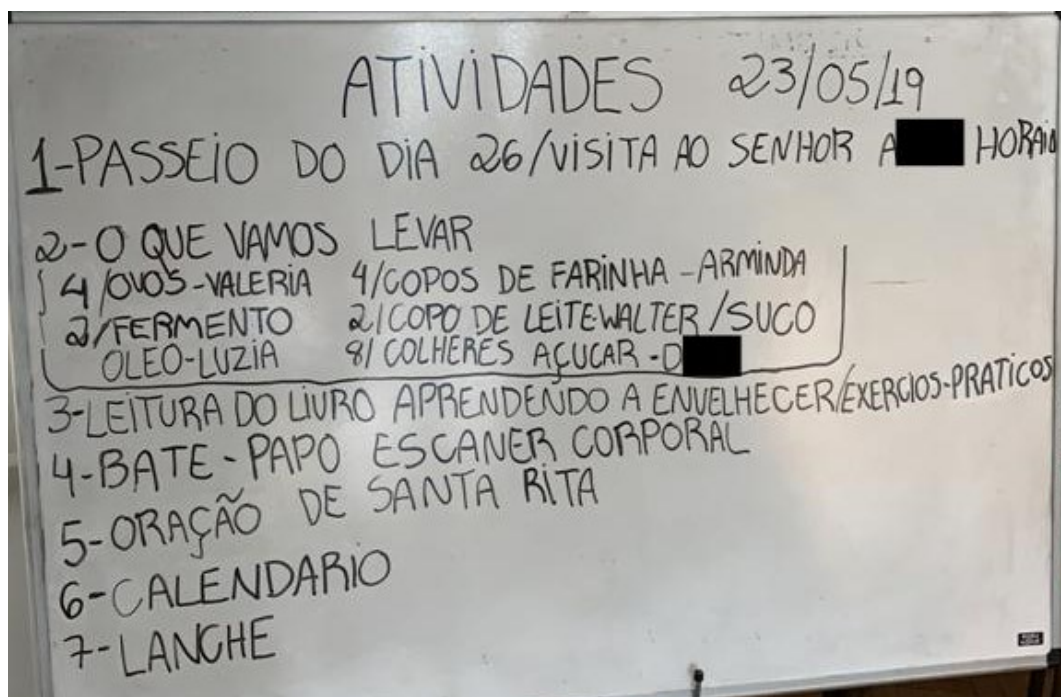 ATIVIDADES 23/05/19
1-PASSEIO DO DIA 26/VISITA AO SENHOR A HORAIO
2-O QUE VAMOS LEVAR
4/OVOS-VALERIA 4/COPOS DE FARINHA-ARMINDA
2/FERMENTO 2/COPO DE LEITE-WALTER/SUCO
OLEO-LUZIA 8/COLHERES AÇUCAR-D
3-LEITURA DO LIVRO APRENDENDO A ENVELHECER/EXERCIOS-PRATICOS
4-BATE-PAPO ESCANER CORPORAL
5-ORAÇÃO DE SANTA RITA
6-CALENDARIO
7-LANCHE